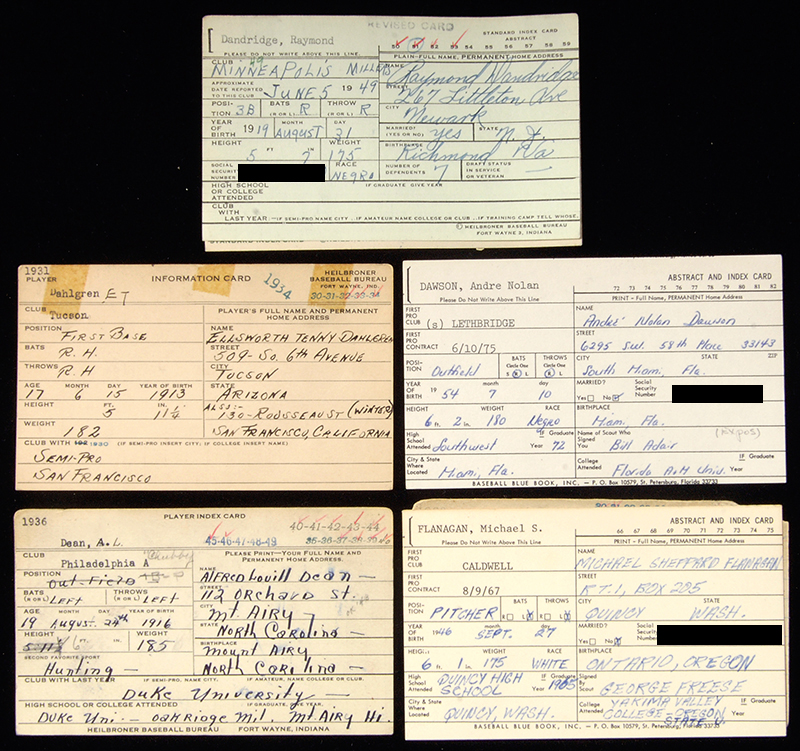 REVISED CARD
Dandridge, Raymond
STANDARD INDEX CARD
ABSTRACT
50 51 52 53 54 55 56 57 58 59
PLEASE DO NOT WRITE ABOVE THIS LINE.
PLAIN-FULL NAME, PERMANENT HOME ADDRESS
CLUB '49
MINNEAPOLIS MILLERS
NAME
Raymond Dandridge
APPROXIMATE
DATE REPORTED
TO THIS CLUB JUNE 5 1949
STREET
267 Littleton Ave
POSITION 3B
BATS (R OR L) R
THROW (R OR L) R
CITY
Newark
YEAR OF BIRTH 1919
MONTH AUGUST
DAY 31
MARRIED? (YES OR NO) yes
STATE N. J.
HEIGHT 5 FT 7 IN
WEIGHT 175
BIRTHPLACE
Richmond Va
SOCIAL SECURITY NUMBER
RACE NEGRO
NUMBER OF DEPENDENTS 7
DRAFT STATUS IN SERVICE OR VETERAN —
HIGH SCHOOL OR COLLEGE ATTENDED
IF GRADUATE GIVE YEAR
CLUB WITH LAST YEAR—IF SEMI-PRO NAME CITY . . IF AMATEUR NAME COLLEGE OR CLUB . . IF TRAINING CAMP TELL WHOSE.
© HEILBRONER BASEBALL BUREAU
FORT WAYNE 2, INDIANA
1931
PLAYER
Dahlgren ET
INFORMATION CARD
1934
HEILBRONER
BASEBALL BUREAU
FORT WAYNE, IND.
30-31-32-33-34
CLUB
Tucson
PLAYER'S FULL NAME AND PERMANENT
HOME ADDRESS
POSITION
FIRST BASE
NAME
ELLSWORTH TENNY DAHLGREN
BATS
R.H.
STREET
509-SO. 6TH AVENUE
THROWS
R.H.
CITY
TUCSON
AGE 17
MONTH 6
DAY 15
YEAR OF BIRTH 1913
STATE
ARIZONA
HEIGHT FT. 5 IN. 11 1/2
ALSO:-
130-ROUSSEAU ST (WINTER)
WEIGHT
182
SAN FRANCISCO, CALIFORNIA
CLUB WITH 1930 (IF SEMI-PRO INSERT CITY; IF COLLEGE INSERT NAME)
SEMI-PRO
SAN FRANCISCO
DAWSON, Andre Nolan
ABSTRACT AND INDEX CARD
72 73 74 75 76 77 78 79 80 81 82
Please Do Not Write Above This Line
PRINT – Full Name, PERMANENT Home Address
FIRST PRO CLUB (s) LETHBRIDGE
NAME
André Nolan Dawson
FIRST PRO CONTRACT 6/10/75
STREET
6295 S.W. 58th Place 33143
POSITION Outfield
BATS Circle One S R L
THROWS Circle One R L
CITY STATE ZIP
South Miami, Fla.
YEAR OF BIRTH 19 54
month 7
day 10
MARRIED? Yes No
Social Security Number
HEIGHT 6 ft. 2 in.
WEIGHT 180
RACE Negro
BIRTHPLACE
Miami, Fla.
(EXPOS)
High School Attended Southwest
IF Graduate Year 72
Name of Scout Who Signed You Bill Adair
City & State Where Located Miami, Fla.
College Attended Florida A&M Univ.
IF Graduate Year
BASEBALL BLUE BOOK, INC. – P. O. Box 10579, St. Petersburg, Florida 33733
1936
PLAYER INDEX CARD
40-41-42-43-44
Dean, A.L.
45-46-47-48-49
35-36-37-38-39
CLUB
Philadelphia A
Chubby
PLEASE PRINT—YOUR FULL NAME AND
PERMANENT HOME ADDRESS.
POSITION
Out-Field
NAME
Alfred Lovill Dean —
BATS (R OR L) LEFT
THROWS (R OR L) LEFT
STREET
112 Orchard St.
AGE 19
MONTH August
DAY 24th
YEAR OF BIRTH 1916
CITY
Mt. Airy —
STATE
North Carolina —
HEIGHT 5-11 1/2 6 FT. IN.
WEIGHT 185
BIRTHPLACE
Mount Airy
North Carolina —
SECOND FAVORITE SPORT
Hunting —
CLUB WITH LAST YEAR (IF SEMI-PRO, NAME CITY IF AMATEUR, NAME COLLEGE OR CLUB)
Duke University —
HIGH SCHOOL OR COLLEGE ATTENDED IF GRADUATE, GIVE YEAR
Duke Uni — Oak Ridge Mil. Mt. Airy Hi.
HEILBRONER BASEBALL BUREAU FORT WAYNE, INDIANA
FLANAGAN, Michael S.
ABSTRACT AND INDEX CARD
66 67 68 69 70 71 72 73 74 75
Please Do Not Write Above This Line
PRINT – Full Name, PERMANENT Home Address
FIRST PRO CLUB CALDWELL
NAME
MICHAEL SHEPPARD FLANAGAN
FIRST PRO CONTRACT 8/9/67
STREET
RT. 1, BOX 225
POSITION PITCHER
BATS R L
THROWS R L
CITY STATE
QUINCY WASH.
YEAR OF BIRTH 1946
month SEPT.
day 27
MARRIED? Yes No
Social Security Number
HEIGHT 6 ft. 1 in.
WEIGHT 175
RACE WHITE
BIRTHPLACE
ONTARIO, OREGON
High School Attended QUINCY HIGH SCHOOL
IF Graduate Year 1965
Signed By Scout GEORGE FREESE
City & State Where Located QUINCY, WASH.
College Attended YAKIMA VALLEY
COLLEGE-OREGON
STATE U.
BASEBALL BLUE BOOK, INC. – P. O. Box 10579, St. Petersburg, Florida 33733